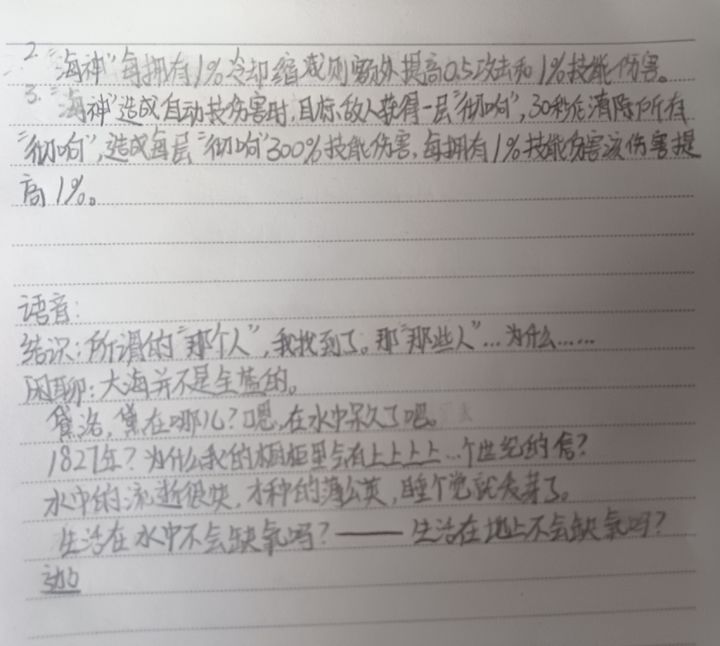 2. "海神"每拥有1%冷却缩减则额外提高0.5攻击和1%技能伤害。
3. "海神"造成自动技伤害时,目标敌人获得一层"彻响",30秒后清除所有
"彻响",造成每层"彻响"300%技能伤害,每拥有1%技能伤害该伤害提
高1%。
语音:
结识:所谓的"那个人",我找到了。那"那些人"…为什么……
闲聊:大海并不是全蓝的。
黛洛,黛在哪儿?嗯,在水中呆久了吧。
1827年?为什么我的橱柜里与有上上上上…个世纪的信?
水中的流逝很快,才种的蒲公英,睡个觉就发芽了。
生活在水中不会缺氧吗?——生活在地上不会缺氧吗?